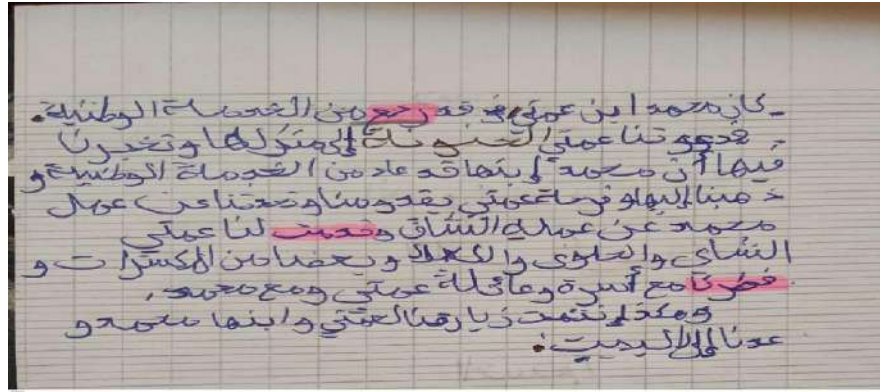 ـ كان محمد ابن عمتي قد رجع من الخدمة الوطنية.
ـ فدعوتنا عمتي الحنونة إلى منزلها وتخبرنا
فيها أن محمد إبنها قد عاد من الخدمة الوطنية و
ذهبنا إليها وفرحة عمتي بقدومنا وتحدثنا عن عمل
محمد عن عمله الشاق وقدمت لنا عمتي
الشاي والحلوى و وبعضا من المكسرات و
فطرنا مع أسرة وعائلة عمتي ومع محمد.
وهكذا إنتهت زيارتنا لعمتي وابنها محمد و
عدنا إلى البيت.